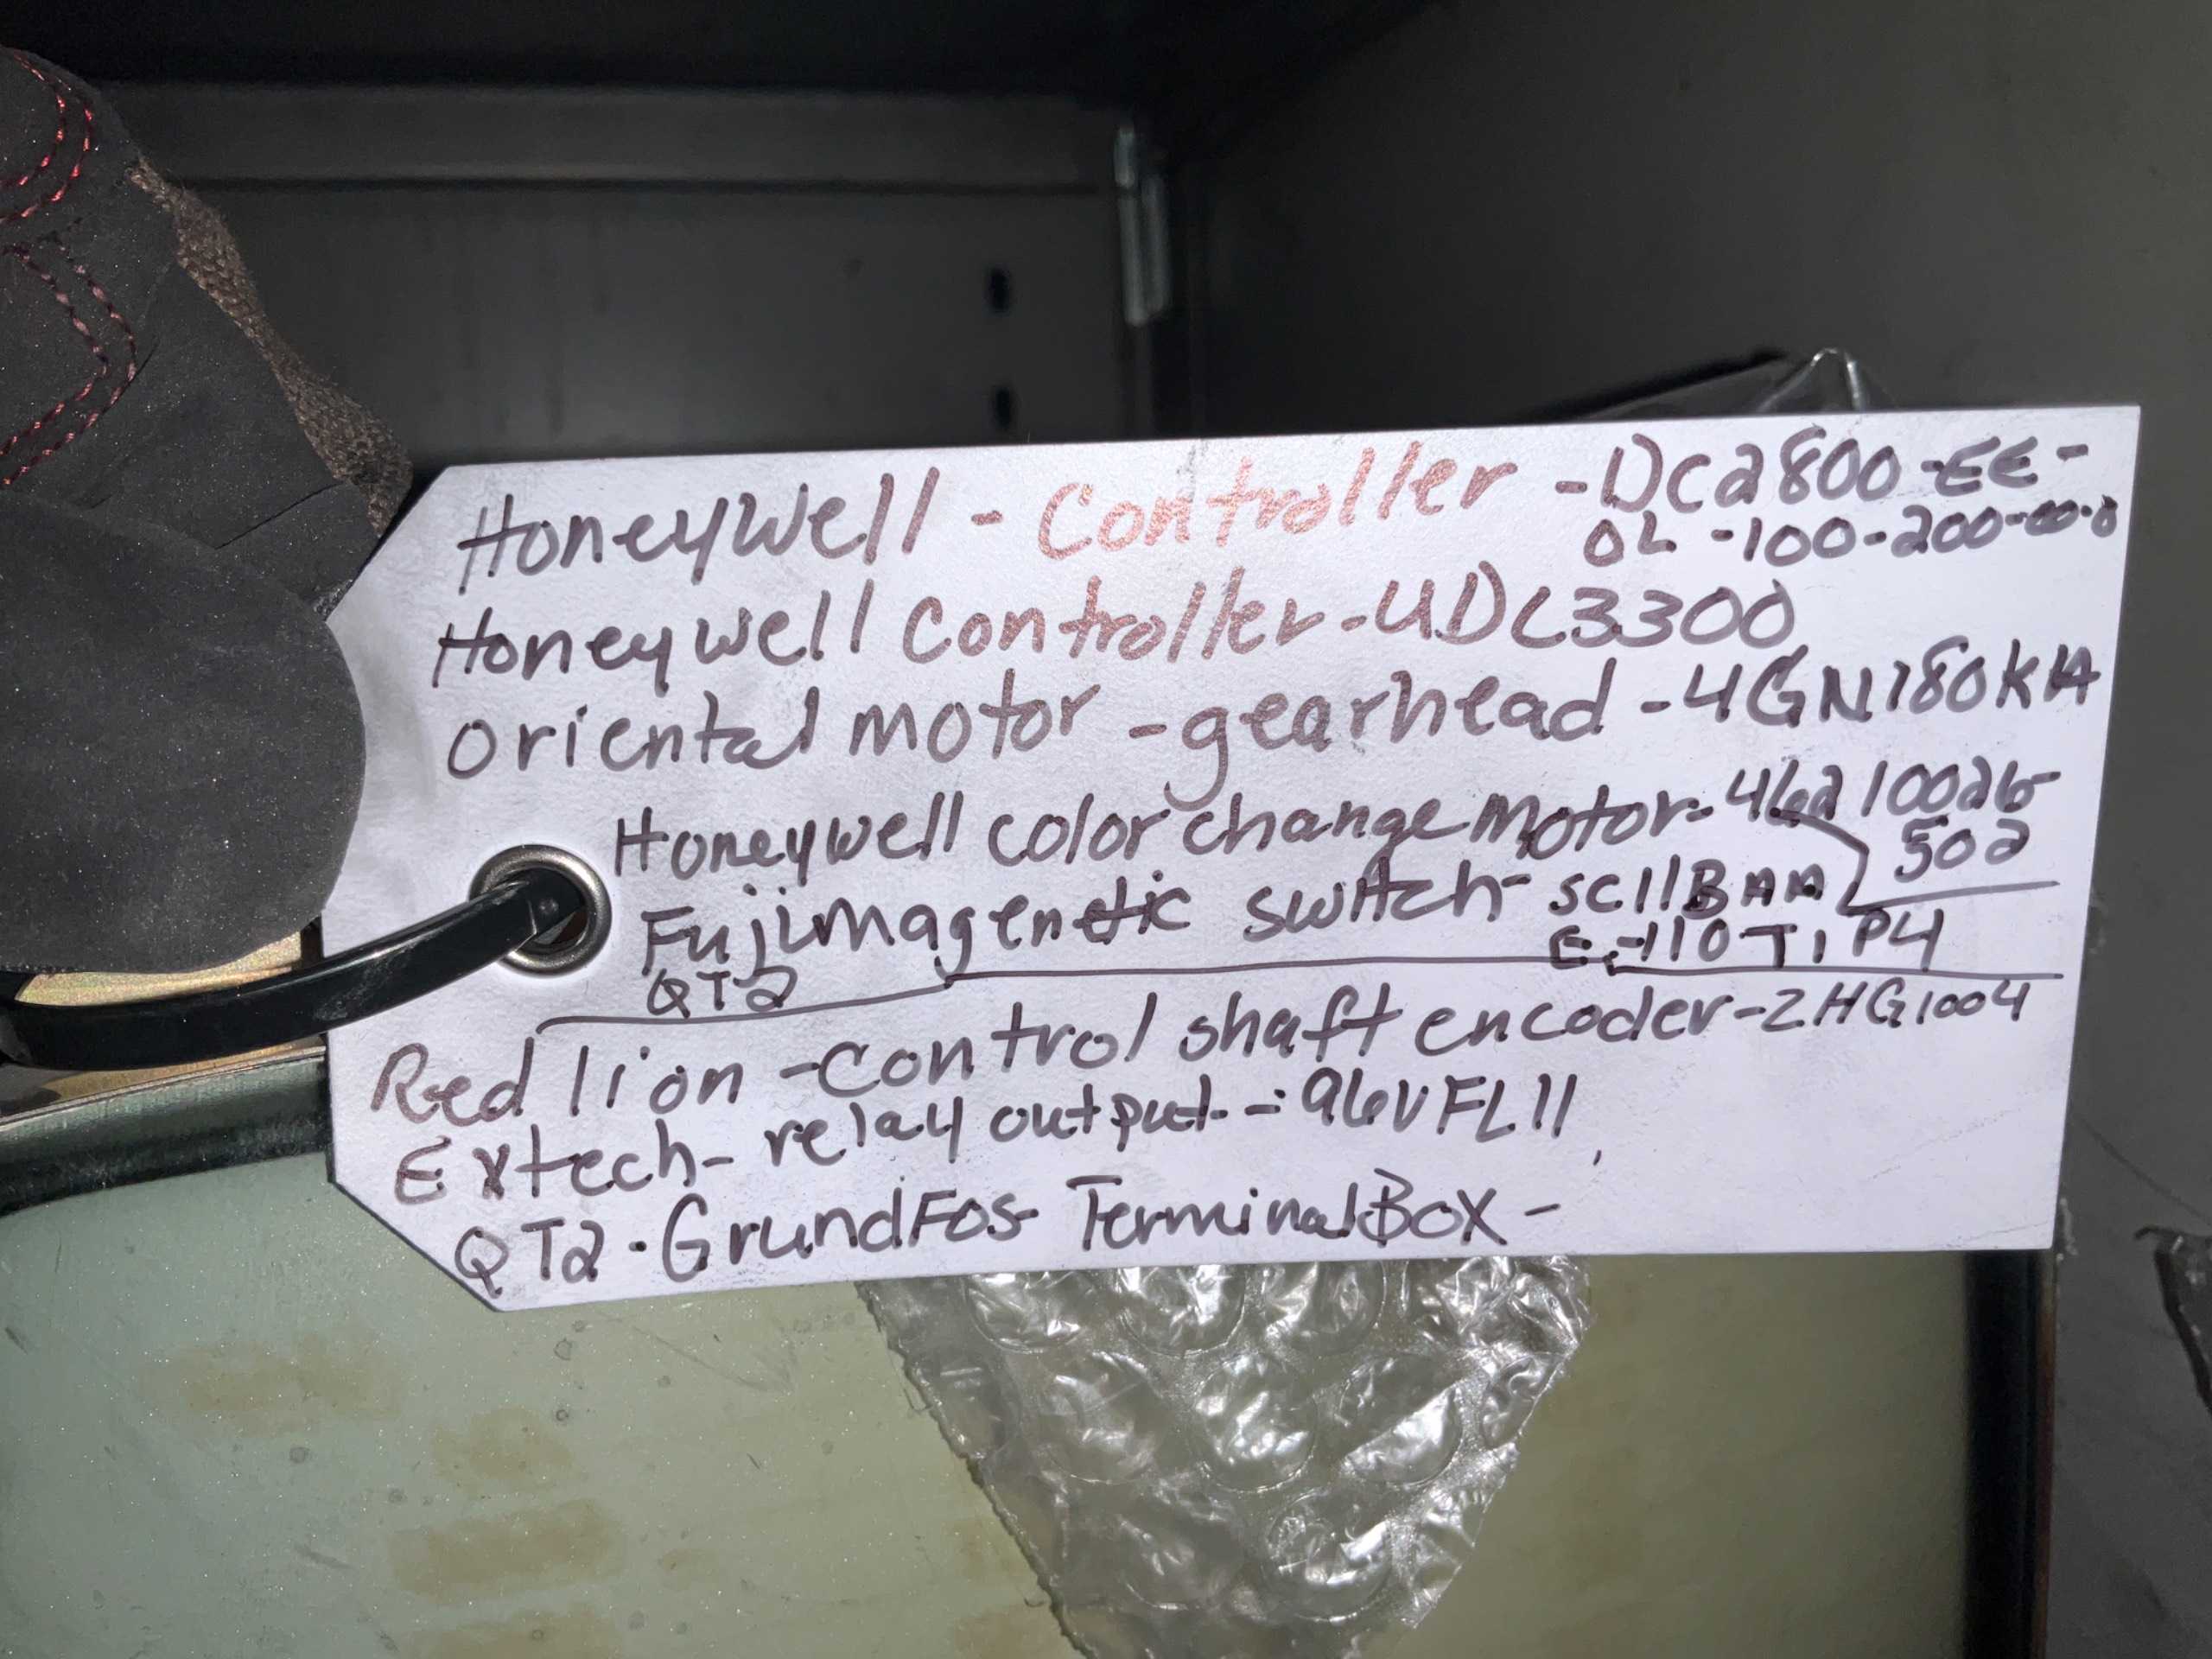 Honeywell - Controller - DC2800-EE-
0L-100-200-00-0
Honeywell Controller-UDC3300
Oriental motor - gearhead - 4GN180KA
Honeywell color change Motor- 46210026-
502
Fujimagenetic switch- SC11BAA
E-110T1P4
QT2
Red lion - Control shaft encoder-ZHG1004
Extech- relay output - 96VFL11
QT2 · GrundFos- Terminal Box -